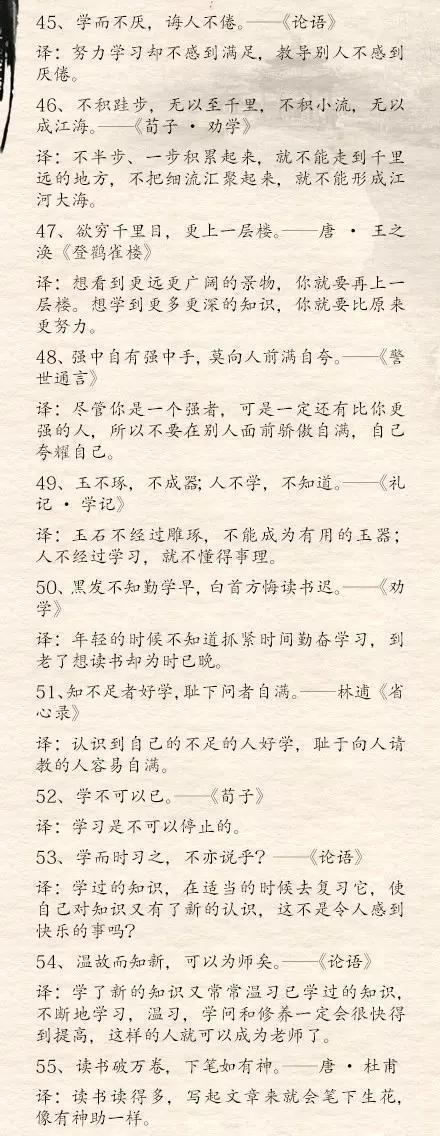 45、学而不厌，诲人不倦。——《论语》
译：努力学习却不感到满足，教导别人不感到
厌倦。
46、不积跬步，无以至千里，不积小流，无以
成江海。——《荀子 · 劝学》
译：不半步、一步积累起来，就不能走到千里
远的地方，不把细流汇聚起来，就不能形成江
河大海。
47、欲穷千里目，更上一层楼。——唐 · 王之
涣《登鹳雀楼》
译：想看到更远更广阔的景物，你就要再上一
层楼。想学到更多更深的知识，你就要比原来
更努力。
48、强中自有强中手，莫向人前满自夸。——《警
世通言》
译：尽管你是一个强者，可是一定还有比你更
强的人，所以不要在别人面前骄傲自满，自己
夸耀自己。
49、玉不琢，不成器；人不学，不知道。——《礼
记 · 学记》
译：玉石不经过雕琢，不能成为有用的玉器；
人不经过学习，就不懂得事理。
50、黑发不知勤学早，白首方悔读书迟。——《劝
学》
译：年轻的时候不知道抓紧时间勤奋学习，到
老了想读书却为时已晚。
51、知不足者好学，耻下问者自满。——林逋《省
心录》
译：认识到自己的不足的人好学，耻于向人请
教的人容易自满。
52、学不可以已。——《荀子》
译：学习是不可以停止的。
53、学而时习之，不亦说乎？——《论语》
译：学过的知识，在适当的时候去复习它，使
自己对知识又有了新的认识，这不是令人感到
快乐的事吗？
54、温故而知新，可以为师矣。——《论语》
译：学了新的知识又常常温习已学过的知识，
不断地学习，温习，学问和修养一定会很快得
到提高，这样的人就可以成为老师了。
55、读书破万卷，下笔如有神。——唐 · 杜甫
译：读书读得多，写起文章来就会笔下生花，
像有神助一样。